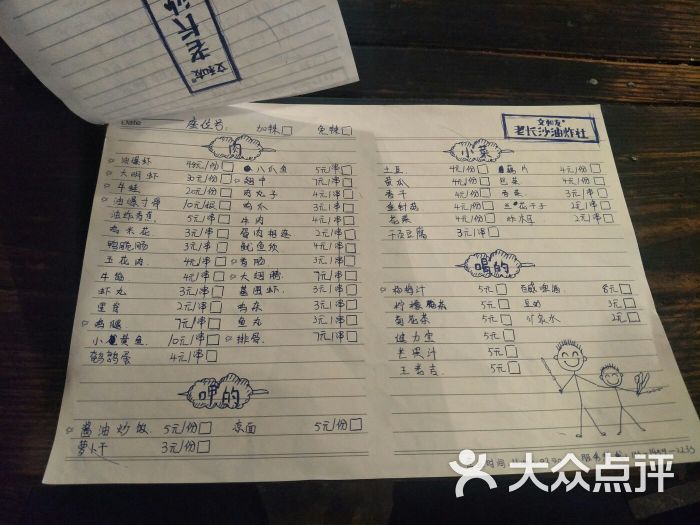 文和友
老长沙
Date 座位号: 加辣□ 免辣□
肉
油爆虾 48元/份□
大明虾 30元/份□
牛蛙 20元/份□
油爆寸骨 10元/根□
5元/串□
鸡米花 3元/串□
鸭脆肠 3元/串□
五花肉 4元/串□
牛鞭 4元/串□
虾丸 3元/串□
里脊 2元/串□
鸡腿 7元/串□
小黄鱼 10元/串□
鹌鹑蛋 4元/串□
八爪鱼 5元/串□
翅中 7元/串□
肉丸子 4元/串□
鸡爪 3元/串□
牛肉 4元/串□
2元/串□
鱿鱼须 4元/串□
香肠 3元/串□
大翅膀 7元/串□
基围虾 3元/串□
鸡杂 3元/串□
鱼丸 3元/串□
排骨 7元/串□
呷的
酱油炒饭 5元/份□ 凉面 5元/份□
萝卜干 3元/份□
文和友
老长沙油炸社
小菜
土豆 4元/份□ 藕片 4元/份□
黄瓜 4元/份□ 包菜 4元/份□
香干 4元/串□ 韭菜 3元/串□
金针菇 4元/份□ 兰花干子 2元/串□
花菜 4元/份□ 2元/串□
千页豆腐 3元/串□
喝的
杨梅汁 5元□ 百威啤酒 8元□
柠檬茶 5元□ 豆奶 3元□
菊花茶 5元□ 矿泉水 2元□
健力宝 5元□
芒果汁 5元□
王老吉 5元□
时间
大众点评